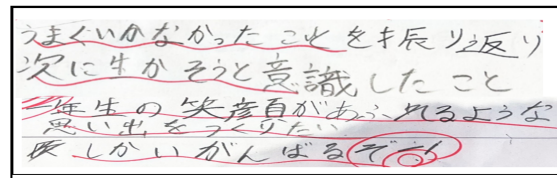 うまくいかなかったことを振り返り
次に生かそうと意識したこと
一年生の笑顔があふれるような
思い出をつくりたい
しかいがんばるぞー!